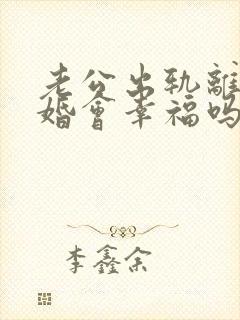 老公出轨離
婚會幸福吗
李鑫余